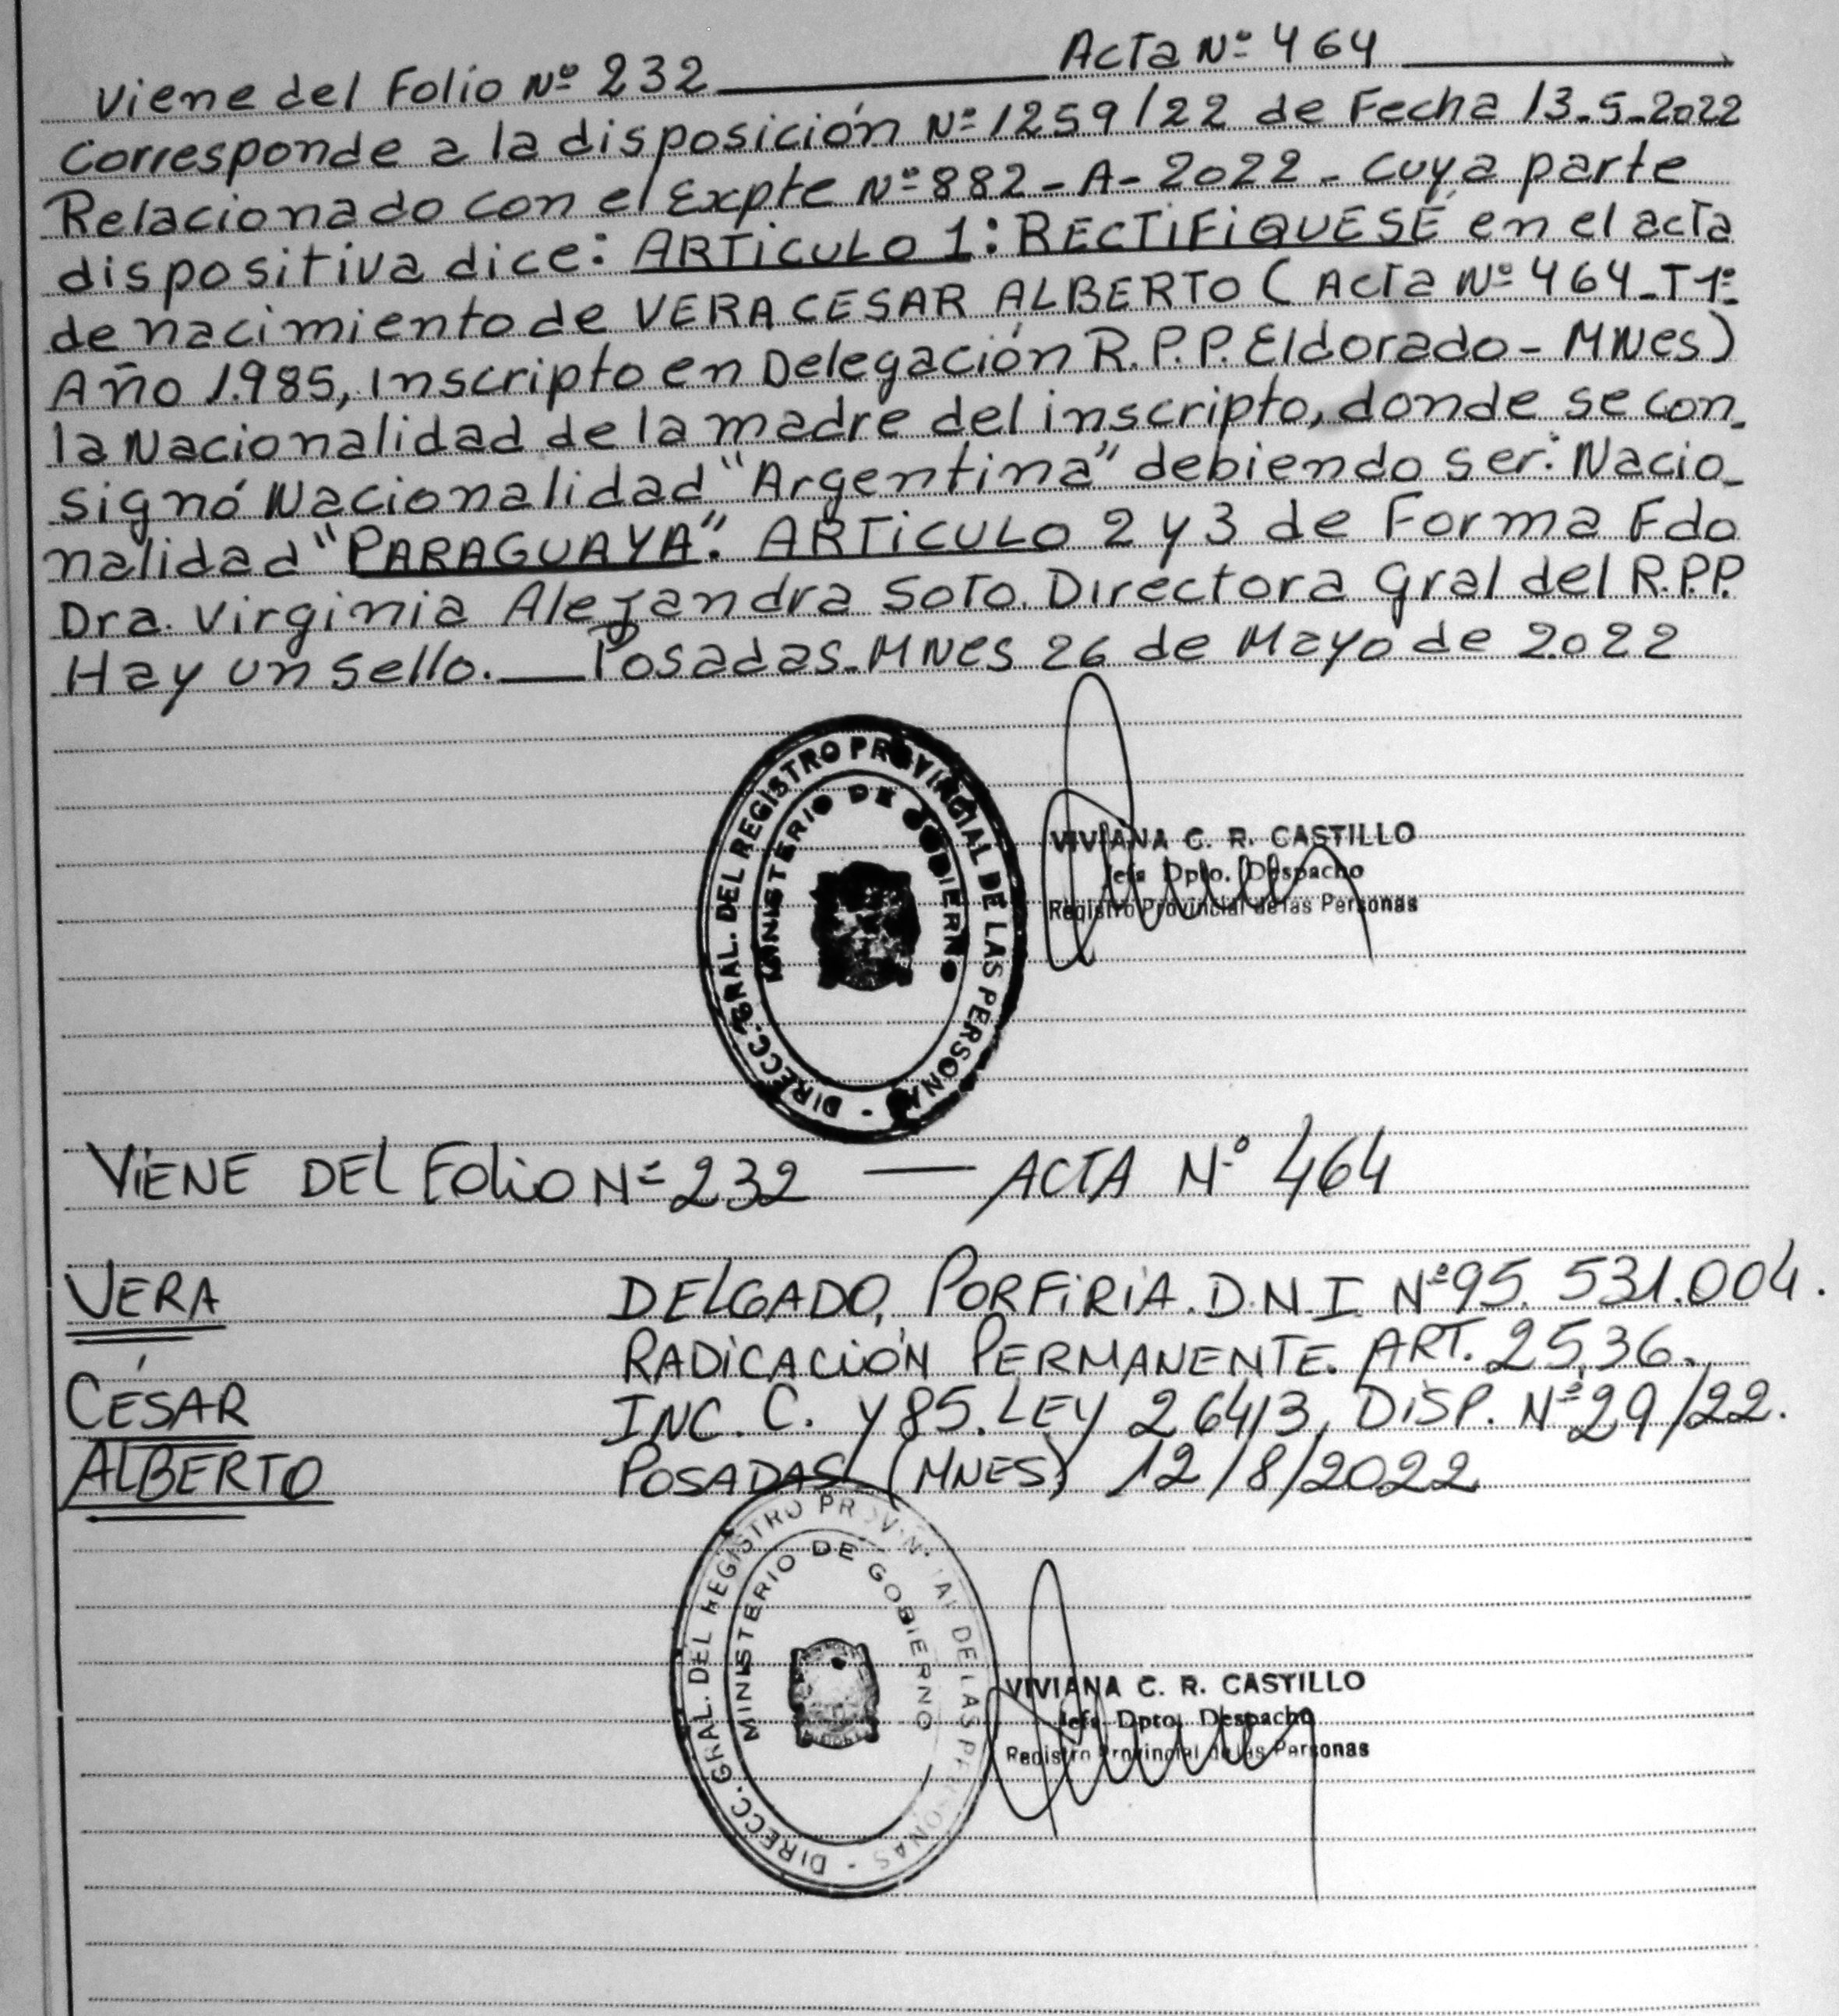 Viene del Folio Nº 232 ______ Acta Nº 464 ______
Corresponde a la disposición Nº 1259/22 de Fecha 13-5-2022
Relacionado con el Expte Nº 882-A-2022- Cuya parte
dispositiva dice: ARTICULO 1: RECTIFIQUESE en el acta
de nacimiento de VERA CESAR ALBERTO (Acta Nº 464-T1º
Año 1.985, Inscripto en Delegación R.P.P. Eldorado- MNes)
la Nacionalidad de la madre del inscripto, donde se con-
signó Nacionalidad "Argentina" debiendo ser: Nacio-
nalidad "PARAGUAYA". ARTICULO 2 y 3 de Forma Fdo
Dra. Virginia Alejandra Soto. Directora Gral del R.P.P.
Hay un sello.___ Posadas-MNes 26 de Mayo de 2022
DIRECC. GRAL. DEL REGISTRO PROVINCIAL DE LAS PERSONAS -
MINISTERIO DE GOBIERNO
VIVIANA C. R. CASTILLO
Jefa Dpto. Despacho
Registro Provincial de las Personas
VIENE DEL FOLIO Nº 232 — ACTA Nº 464
VERA
CÉSAR
ALBERTO
DELGADO, PORFIRIA. D.N.I. Nº 95.531.004.
RADICACIÓN PERMANENTE. ART. 25,36.
INC. C. Y 85. LEY 26413, DISP. Nº 29/22.
POSADAS (MNES) 12/8/2022
DIRECC. GRAL. DEL REGISTRO PROVINCIAL DE LAS PERSONAS -
MINISTERIO DE GOBIERNO
VIVIANA C. R. CASTILLO
Jefa Dpto. Despacho
Registro Provincial de las Personas